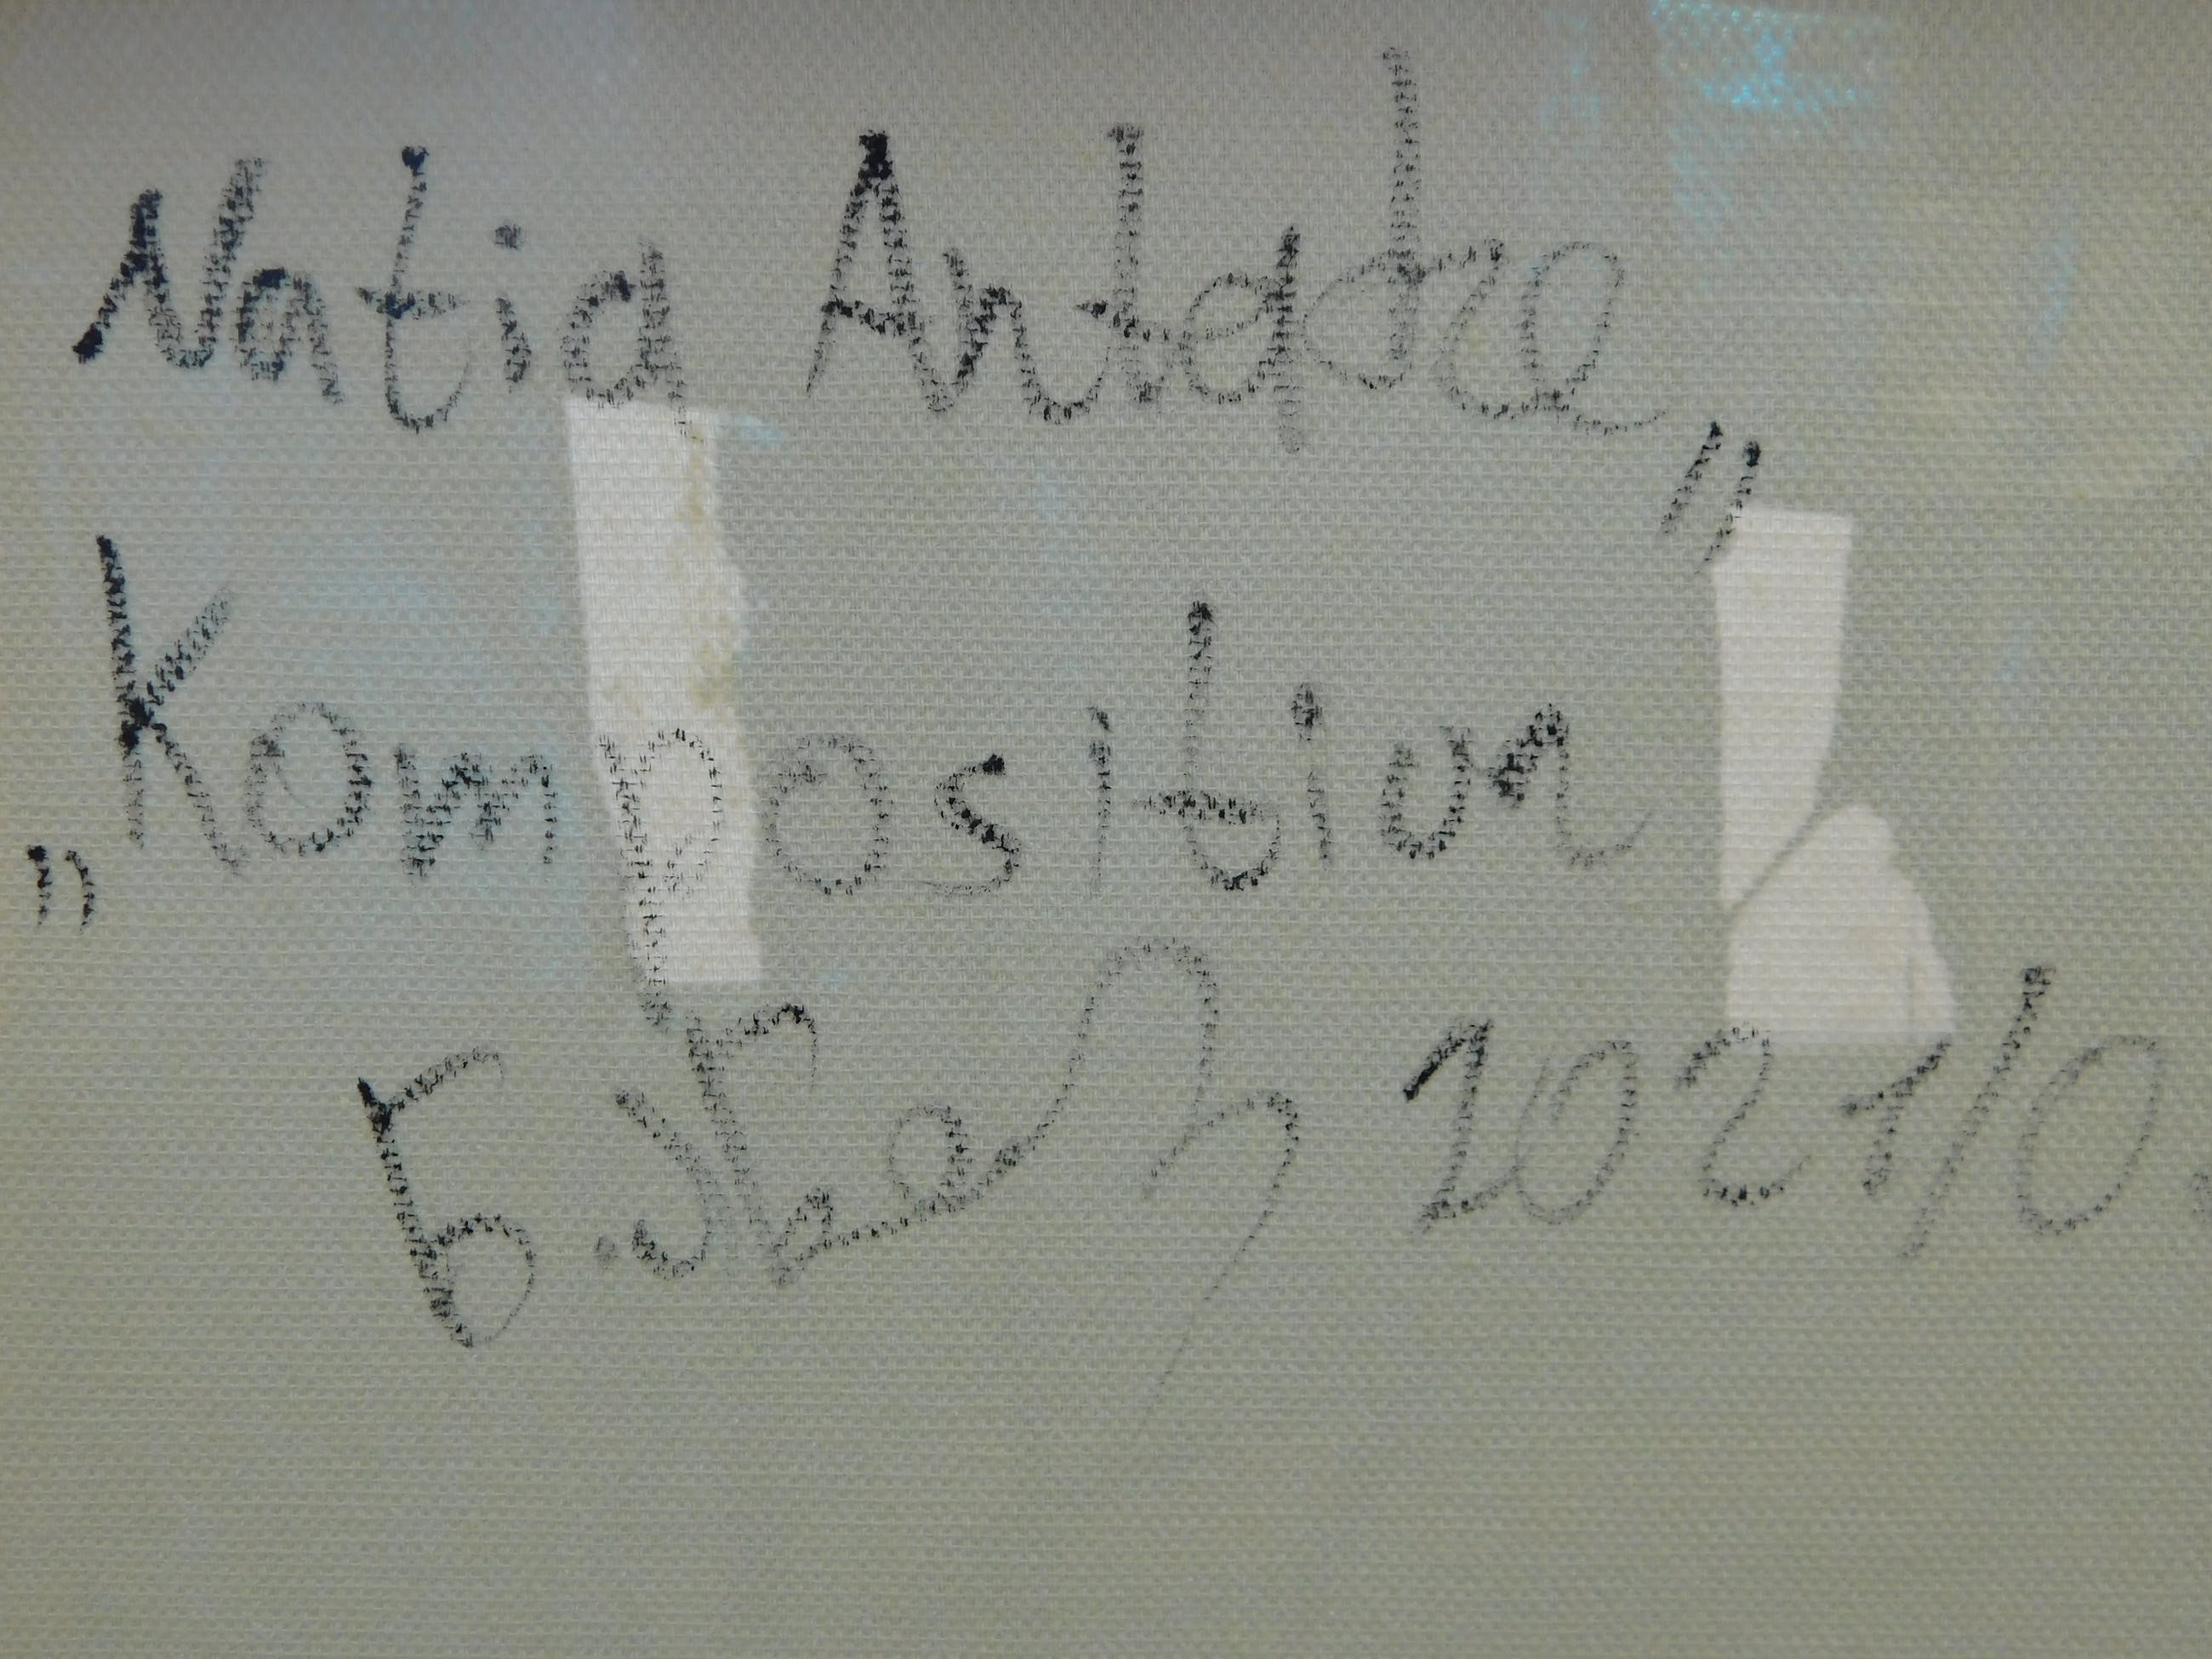 Natia Artqdze
„Kompositiun"
2021/0.